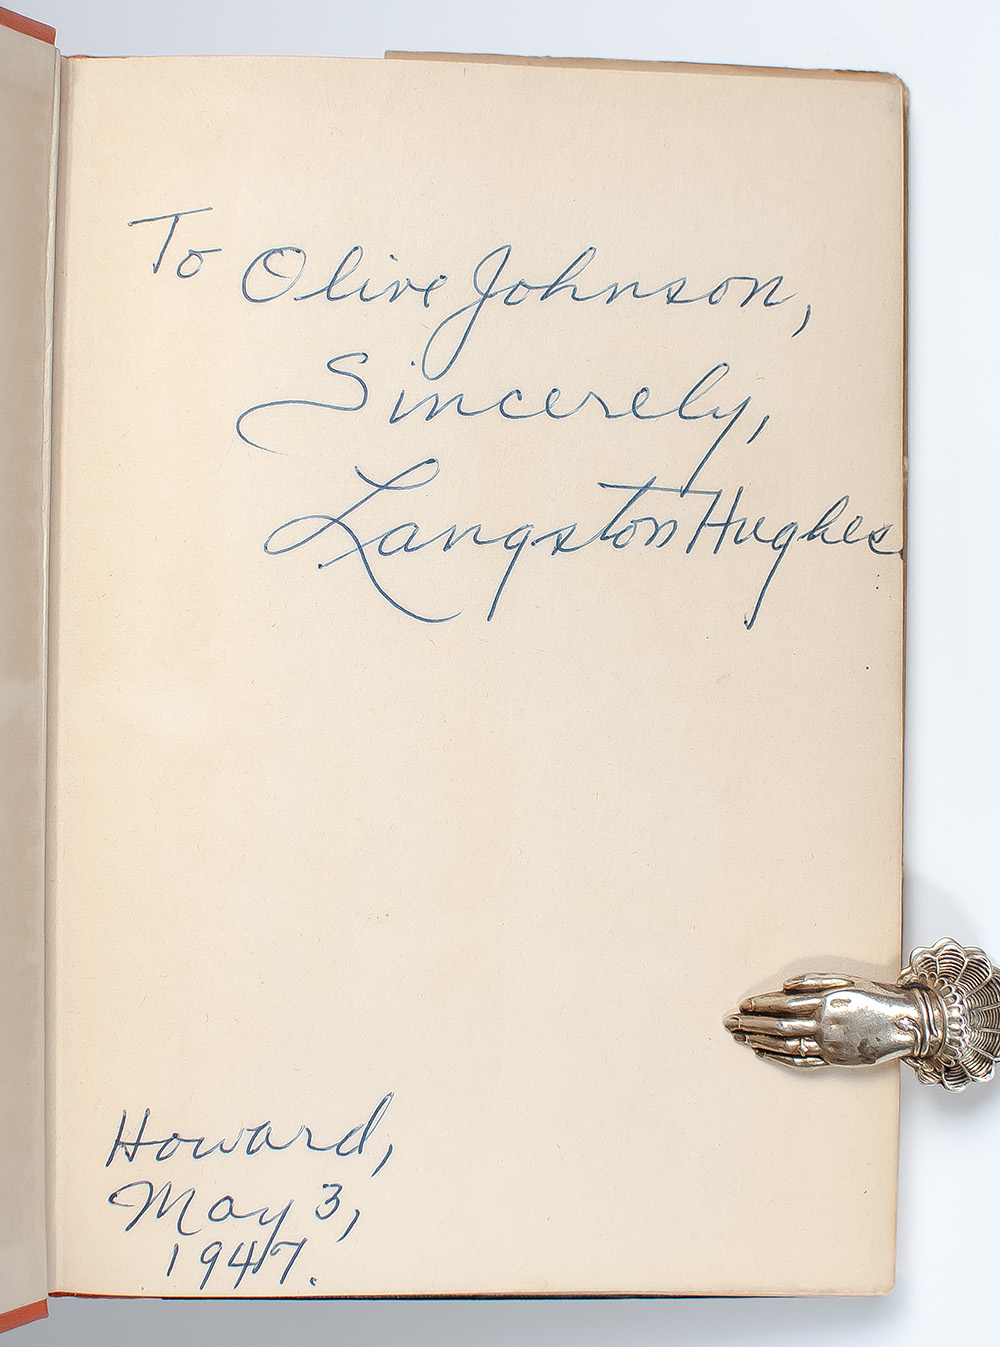 To Olive Johnson,
Sincerely,
Langston Hughes
Howard,
May 3,
1947.